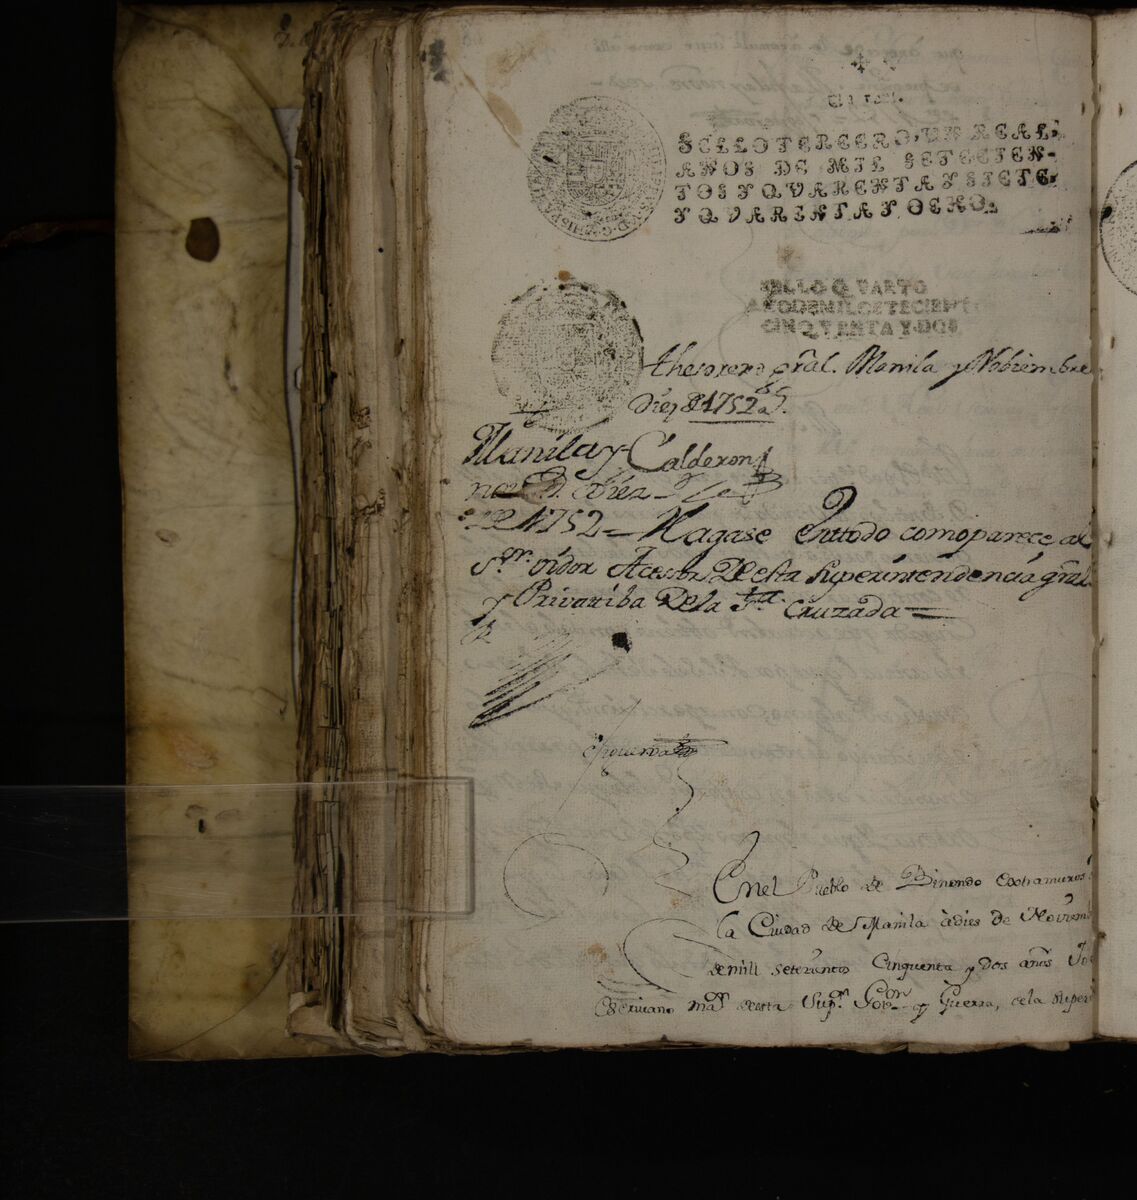 SELLO TERCERO, UN REAL:
AÑOS DE MIL SETECIEN-
TOS Y QVARENTA Y SIETE
Y QVARENTA Y OCHO.
SELLO QVARTO
AÑO DE MIL SETECIENT
CINQVENTA Y DOS
thesorero gral. Manila y Nobiembre
Diez de 1752 as.
Manila y Calderon
nore. Diez
de 1752 = Hagase En todo como parece al
Sr. oidor Acesor Desta superintendencia gral
y Privatiba De la Sta. Cruzada =
En el Pueblo de Binondo Extramuros
la Ciudad de Manila à dies de Noviemb
de mill setecientos Cinquenta y dos años Yo
Escrivano mayr. de esta Supr. Govon. y Guerra, de la superi